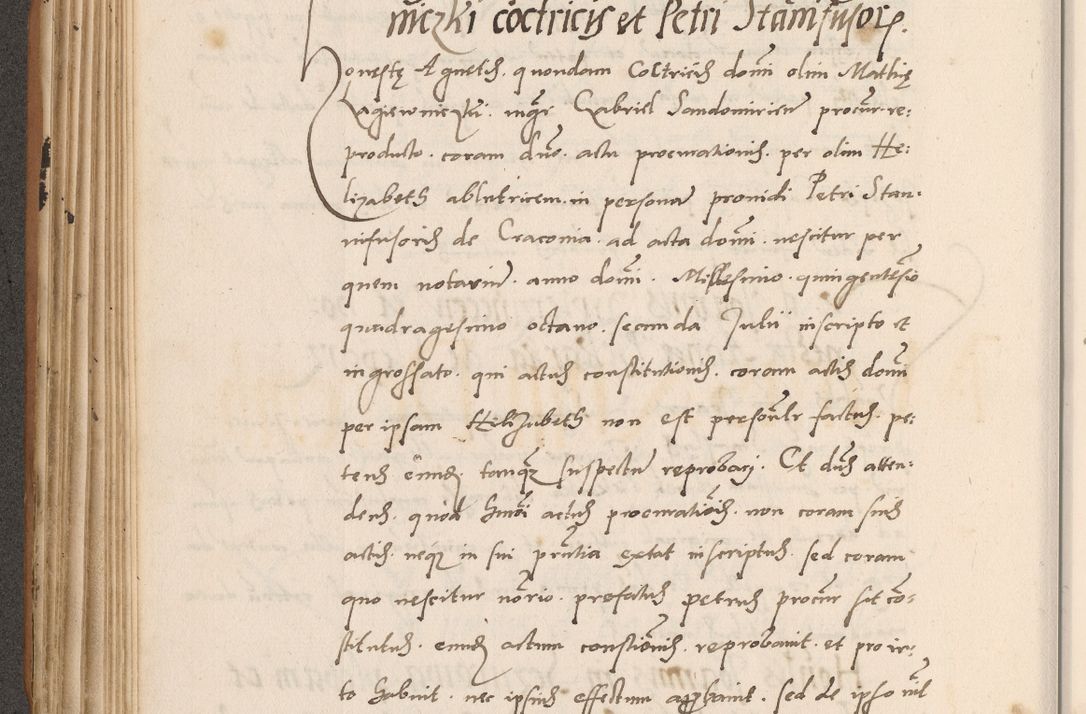 niczki coctricis et Petri Stanifusor.
Honestę Agnetis quondam Coctricis domi olim Mathię
Lagiewniczki. mgr Gabriel Sandomirien procur re:
producto. coram duo. actu procurationis. per olim He:
lizabeth ablutricem in persona providi Petri Stan:
nifusoris de Cracovia. ad acta domi. nescitur per
quem notariu. anno domi. Millesimo quingentesio
quadragesimo octavo. secunda Julii inscripto et
ingrossato. qui actus constitutionis. coram actis domi
per ipsam Helizabeth non est personlr factus. pe:
tens eundem tanquam suspectu reprobari. Et dns atten:
dens. quod hmoi actus procurationis. non coram suis
actis. neque in sui pntia extat inscriptus. sed coram
quo nescitur norio. prefatus petrus procur sit co:
stitutus. eundem actum constionis. reprobavit. et pro ir:
to habuit. nec ipsius effectum approbavit. sed de ipso nil